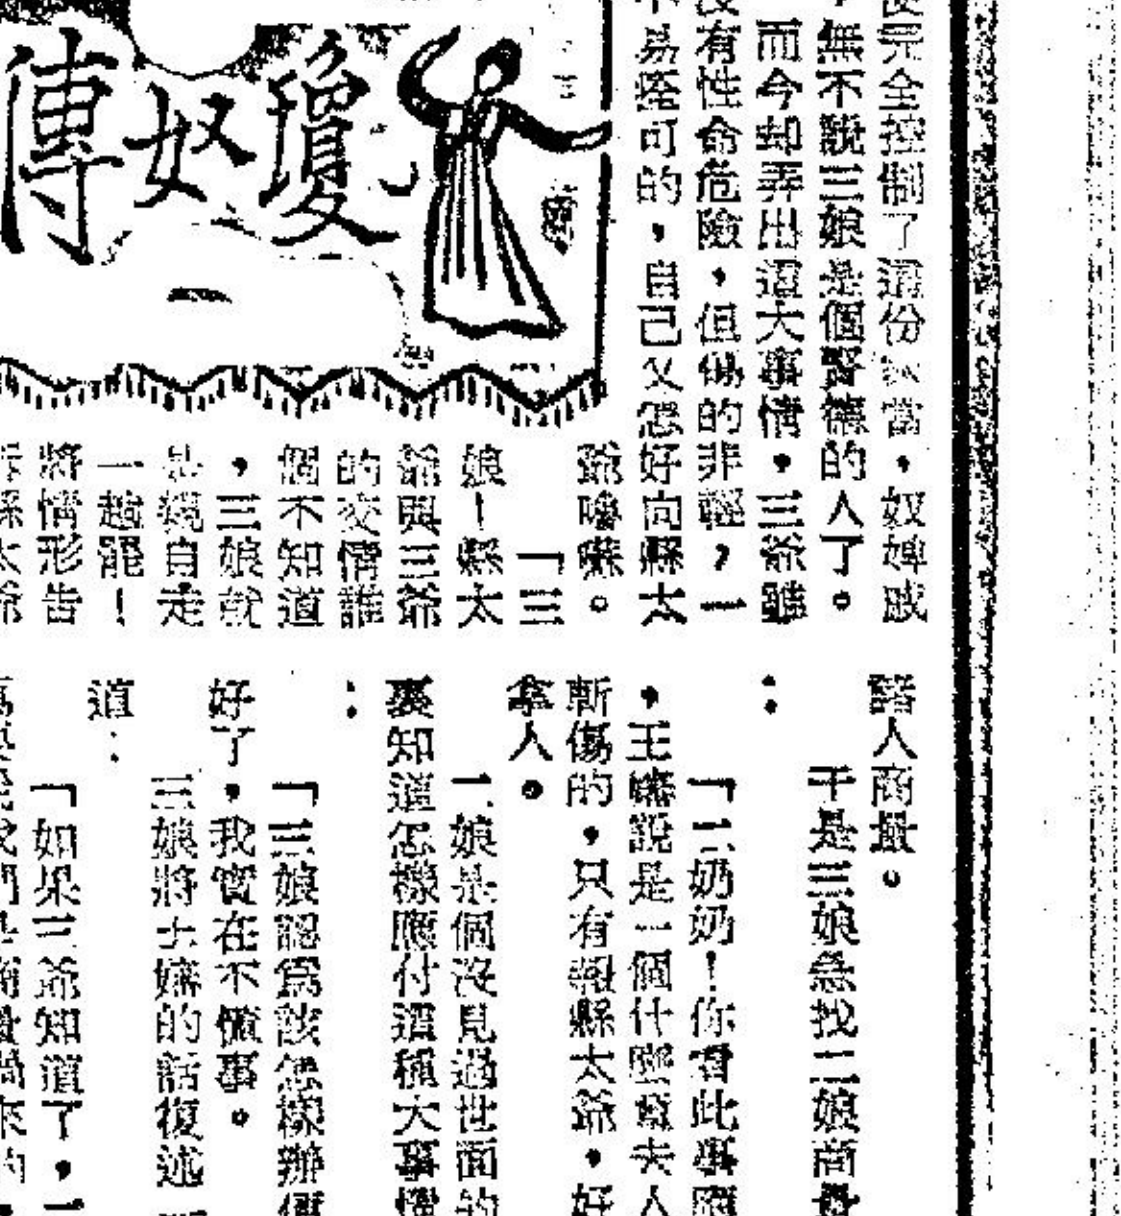 瓊奴傳
一
完全控制了這份家當,奴婢或
無不說三娘是個賢德的人了。
而今却弄出這大事情,三爺雖
沒有性命危險,但傷的非輕,一
不易 可的,自己又怎好向縣太
爺嚕囌。
「三
娘!縣太
爺與三爺
的交情誰
個不知道
,三娘就
是親自走
一趟罷!
將情形告
訴縣太爺
諸人商量。
于是三娘急找二娘商量
:
「二奶奶!你看此事應
,王媽說是一個什麼 夫人
斬傷的,只有報縣太爺,好
拿人。
二娘是個沒見過世面的
裏知道怎樣應付這種大事體
:
「三娘認爲該怎樣辦便
好了,我實在不懂事。
三娘將王媽的話復述一
道:
「如果三爺知道了,一
我們是商量 來的